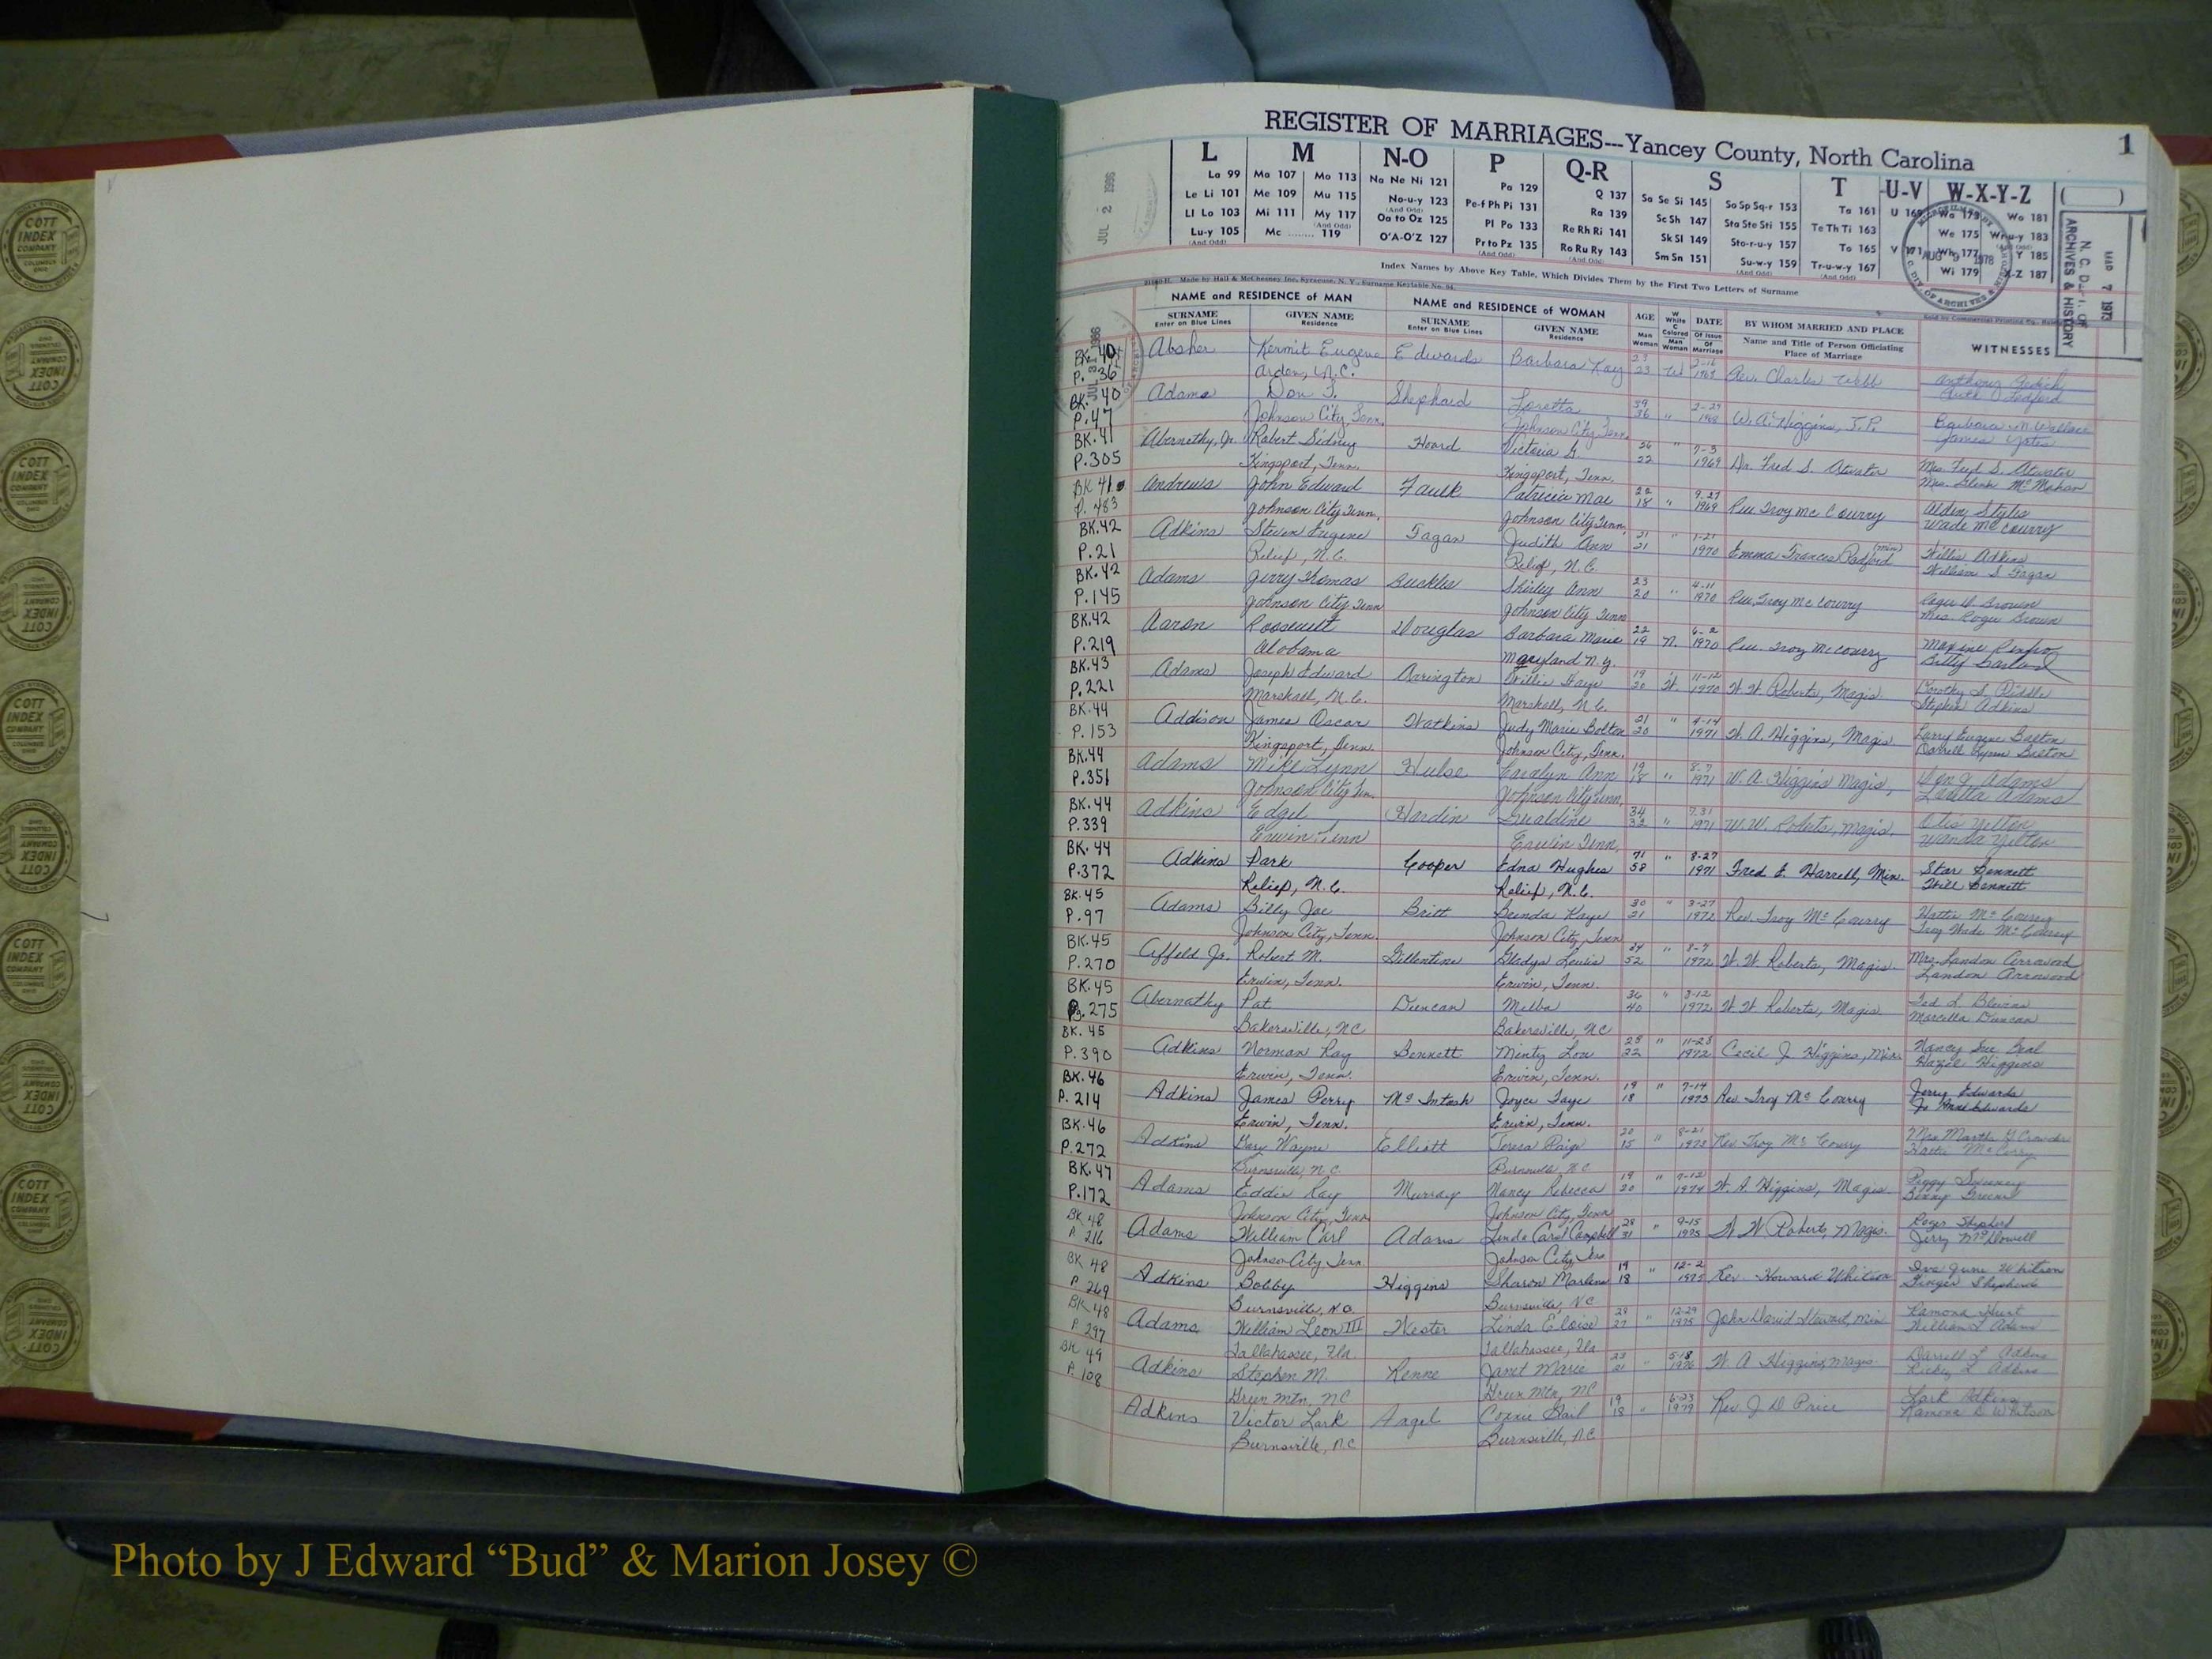 REGISTER OF MARRIAGES---Yancey County, North Carolina
1
L M N-O P Q-R S T U-V W-X-Y-Z
La 99 Ma 107 Mo 113 Na Ne Ni 121 Pa 129 Q 137 Sa Se Si 145 So Sp Sq-r 153 Ta 161 U 169 Wa 173 Wo 181
Le Li 101 Me 109 Mu 115 No-u-y 123 Pe-f Ph Pi 131 Ra 139 Sc Sh 147 Sta Ste Sti 155 Te Th Ti 163 We 175 Wr-u-y 183
Ll Lo 103 Mi 111 My 117 Oa to Oz 125 Pl Po 133 Re Rh Ri 141 Sk Sl 149 Sto-r-u-y 157 To 165 V 171 Wh 177 Y 185
Lu-y 105 Mc 119 O'A-O'Z 127 Pr to Pz 135 Ro Ru Ry 143 Sm Sn 151 Su-w-y 159 Tr-u-w-y 167 Wi 179 X-Z 187
Index Names by Above Key Table, Which Divides Them by the First Two Letters of Surname
Made by Hall & McChesney Inc. Syracuse, N. Y.
JUL 2 1986
AUG 9 1978
N. C. Dept. OF ARCHIVES & HISTORY
7 1973
NAME and RESIDENCE of MAN NAME and RESIDENCE of WOMAN AGE DATE BY WHOM MARRIED AND PLACE WITNESSES
SURNAME GIVEN NAME SURNAME GIVEN NAME Man Woman Of Issue Of Marriage Name and Title of Person Officiating
Enter on Blue Lines Residence Enter on Blue Lines Residence Place of Marriage
BK. 40 Absher Kermit Eugene Edwards Barbara Kay 23 23 W Rev. Charles Webb
P. 36 Arden, N.C.
BK. 40 Adams Don T. Shephard Loretta 39 36 " W. A. Higgins, J.P. Barbara M. Wallace
P. 47 Johnson City, Tenn. Johnson City Tenn. James Yates
BK. 41 Abernethy, Jr. Robert Sidney Hoard Victoria G. 26 22 " 7-3 1969 Dr. Fred S. Atwater Mrs. Fred S. Atwater
P. 305 Kingsport, Tenn. Kingsport, Tenn. Mrs. Glenn McMahan
BK 41 Andrews John Edward Faulk Patricia Mae 22 18 " 9-27 1969 Rev Troy McCourry Alden Styles
P. 483 Johnson City Tenn. Johnson City Tenn. Wade McCourry
BK. 42 Adkins Steven Eugene Fagan Judith Ann 21 21 " 1-21 1970 Emma Frances Radford (Min) Willis Adkins
P. 21 Relief, N.C. Relief, N.C. William S Fagan
BK. 42 Adams Jerry Thomas Buckles Shirley Ann 23 20 " 4-11 1970 Rev Troy McCourry Roger D Brown
P. 145 Johnson City Tenn Johnson City Tenn Mrs. Roger Brown
BK. 42 Aaron Roosevelt Douglas Barbara Marie 22 19 N. 6-2 1970 Rev. Troy McCourry
P. 219 Alabama Maryland N.Y.
BK. 43 Adams Joseph Edward Arrington Willie Kaye 19 20 W. 11-12 1970 W. W. Roberts, Magis. Dorothy S. Riddle
P. 221 Marshall, N.C. Marshall, N.C. Stephen Adkins
BK. 44 Addison James Oscar Watkins Judy Marie Bolton 21 20 " 4-14 1971 W. A. Higgins, Magis.
P. 153 Kingsport, Tenn. Johnson City, Tenn.
BK. 44 Adams Mike Lynn Hulse Carolyn Ann 19 18 " 8-7 1971 W. A. Higgins Magis. Don J. Adams
P. 351 Johnson City Tn. Johnson City Tenn. Loretta Adams
BK. 44 Adkins Edgel Hardin Geraldine 34 32 " 7-31 1971 W. W. Roberts, Magis. Otis Yelton
P. 339 Erwin Tenn Erwin Tenn. Wanda Yelton
BK. 44 Adkins Park Cooper Edna Hughes 71 58 " 8-27 1971 Fred E. Harrell, Min. Star Bennett
P. 372 Relief, N.C. Relief, N.C. Will Bennett
BK. 45 Adams Billy Joe Britt Brenda Kaye 30 21 " 3-27 1972 Rev. Troy McCourry Hattie McCourry
P. 97 Johnson City, Tenn. Johnson City, Tenn. Troy Wade McCourry
BK. 45 Affeld Jr. Robert M. Gellentine Gladys Lewis 52 " 1972 W. W. Roberts, Magis. Mrs. Landon Arrowood
P. 270 Erwin, Tenn. Erwin, Tenn. Landon Arrowood
BK. 45 Abernathy Pat Duncan Melba 36 40 " 1972 W. W. Roberts, Magis. Ted L. Blevins
P. 275 Bakersville, NC Bakersville, NC Marcella Duncan
BK. 45 Adkins Norman Ray Bennett Mintz Lou 22 " 11-23 1972 Cecil J Higgins, Min.
P. 390 Erwin, Tenn. Erwin, Tenn. Hazel Higgins
BK. 46 Adkins James Perry McIntosh Joyce Faye 19 18 " 7-14 1973 Rev. Troy McCourry Jerry Edwards
P. 214 Erwin, Tenn. Erwin, Tenn. Jo Anne Edwards
BK. 46 Adkins Gary Wayne Elliott Teresa Paige 20 15 " 8-21 1973 Rev Troy McCourry
P. 272 Burnsville, N.C. Burnsville, N.C.
BK. 47 Adams Eddie Ray Murray Nancy Rebecca 19 20 " 7-12 1974 W. A. Higgins, Magis. Peggy Sweeney
P. 172 Johnson City, Tenn. Johnson City, Tenn Benny Greene
BK 48 Adams William Carl Adams Linda Carol Campbell 28 31 " 9-15 1975 W W Roberts, Magis. Roger Shepherd
P. 216 Johnson City Tenn Johnson City, Tenn Jerry McDowell
BK 48 Adkins Bobby Higgins Sharon Marlene 19 18 " 12-2 1975 Rev. Howard Whitson Iva June Whitson
P. 269 Burnsville, N.C. Burnsville, NC Ginger Shepherd
BK 48 Adams William Leon III Hester Linda Eloise 29 27 " 12-29 1975 John David Stewart, Min Ramona Hunt
P. 297 Tallahassee, Fla. Tallahassee, Fla. William L Adams
BK 49 Adkins Stephen M. Renne Janet Marie 23 21 " 5-18 1976 W A Higgins, Magis. Darrell L Adkins
P. 108 Green Mtn, NC Green Mtn, NC Rickey L Adkins
Adkins Victor Lark Angel Connie Gail 19 18 " 6-23 1979 Rev. J D Price Lark Adkins
Burnsville, N.C Burnsville, N.C Ramona D Whitson
COTT INDEX COMPANY COLUMBUS OHIO
Photo by J Edward “Bud” & Marion Josey ©